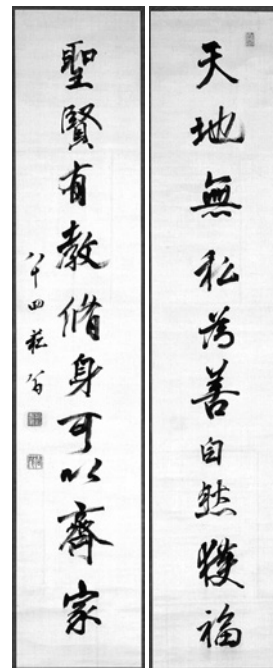 天地無私為善自然獲福
聖賢有教脩身可以齊家
八十四莊翁